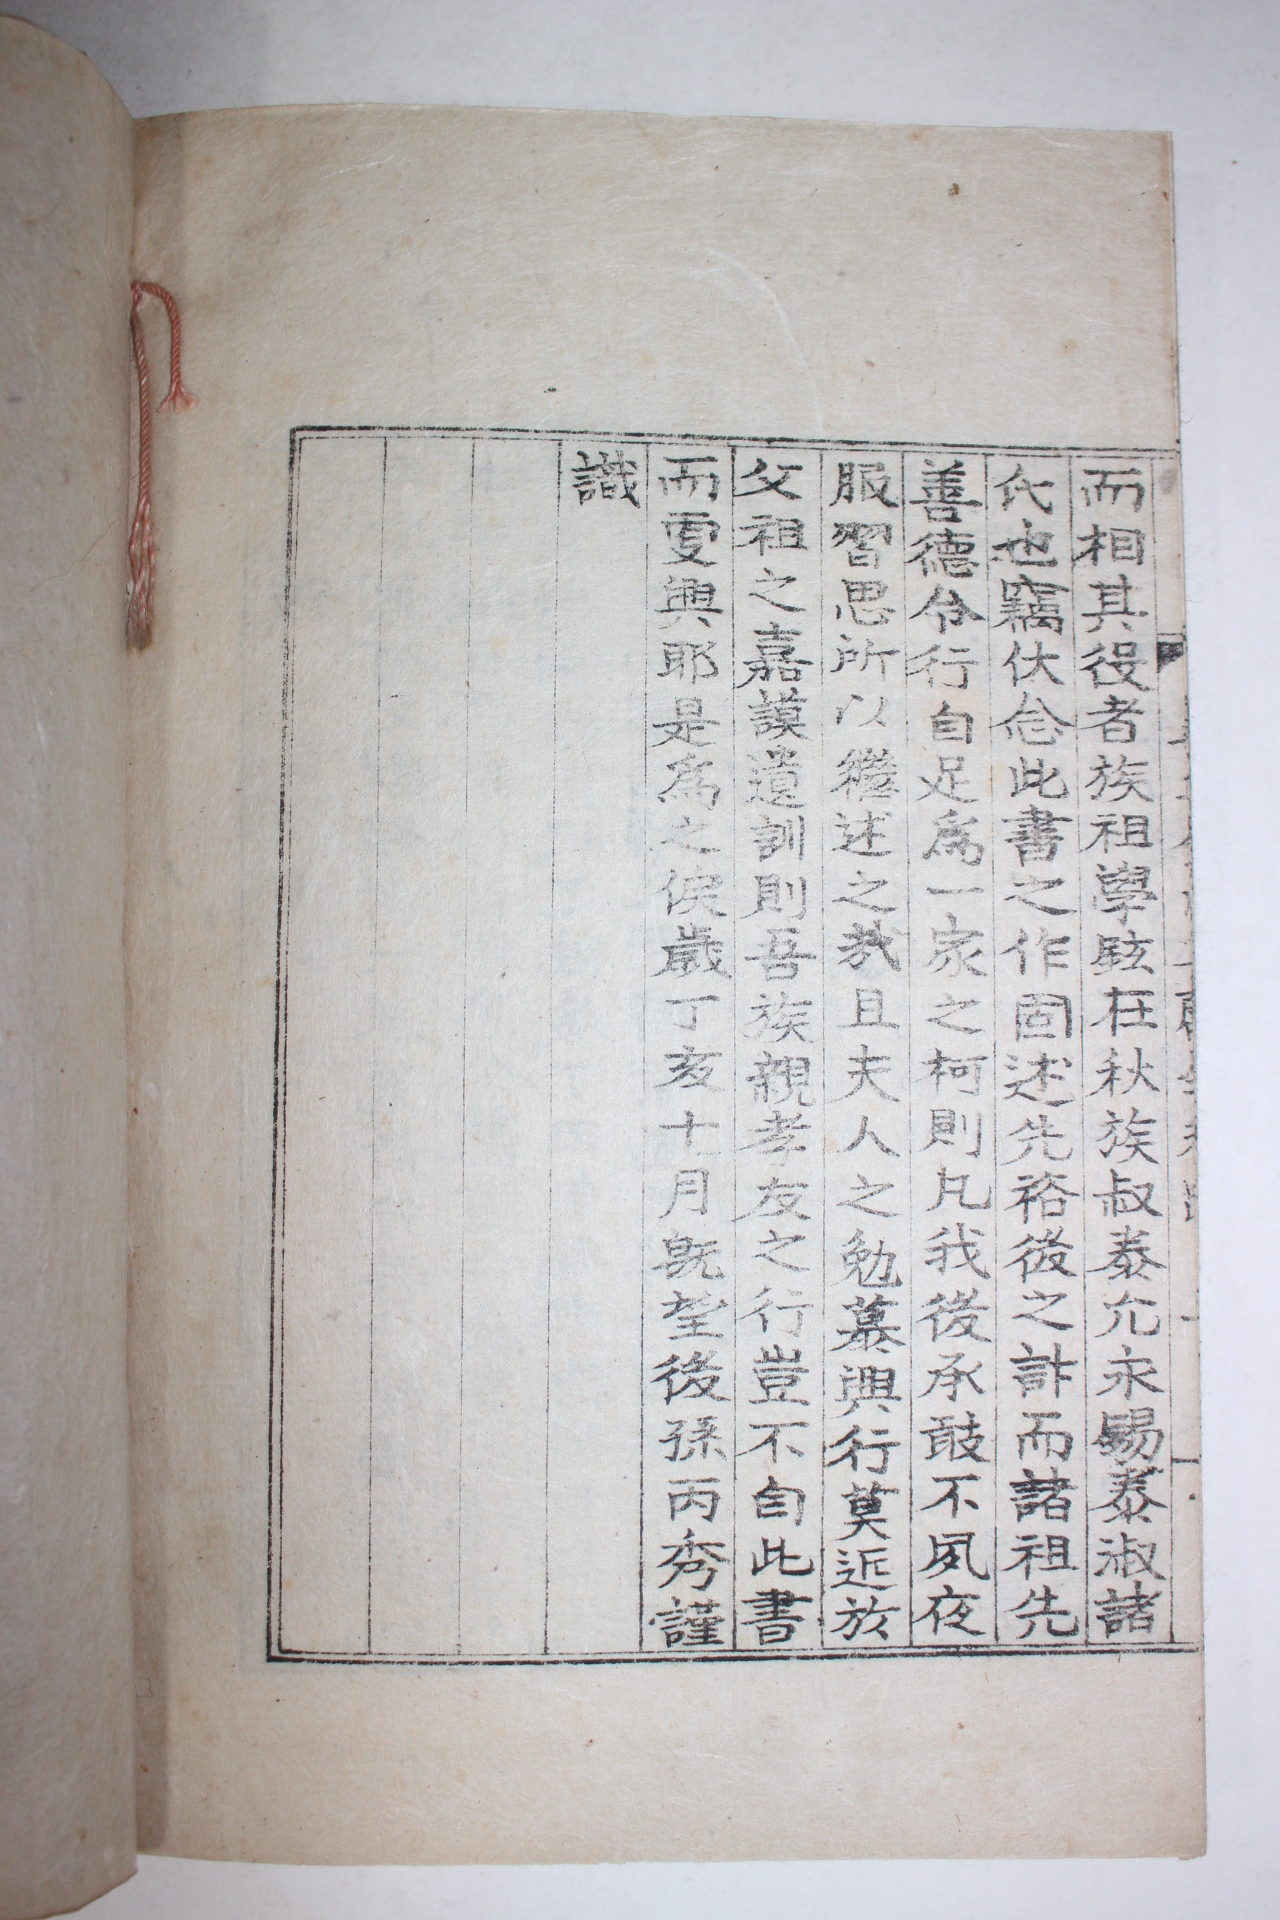 而相其役者族祖學鉉在秋族叔泰允永錫泰淑諸
氏也竊伏念此書之作固述先裕後之計而諸祖先
善德令行自足爲一家之柯則凡我後承敢不夙夜
服習思所以繼述之哉且夫人之勉慕興行莫近於
父祖之嘉謨遺訓則吾族親孝友之行豈不自此書
而更興耶是爲之俟歲丁亥十月旣望後孫丙秀謹
識